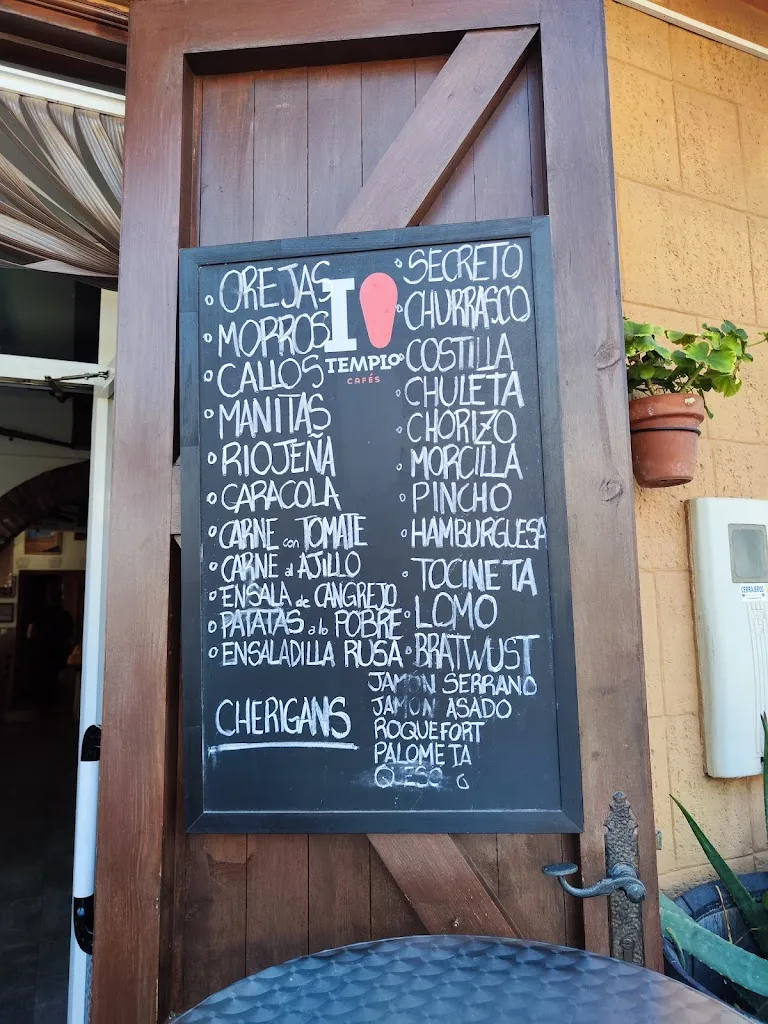 OREJAS
MORROS
CALLOS
MANITAS
RIOJEÑA
CARACOLA
CARNE con TOMATE
CARNE al AJILLO
ENSALA de CANGREJO
PATATAS a lo POBRE
ENSALADILLA RUSA
I
TEMPLO
CAFÉS
SECRETO
CHURRASCO
COSTILLA
CHULETA
CHORIZO
MORCILLA
PINCHO
HAMBURGUESA
TOCINETA
LOMO
BRATWUST
CHERIGANS
JAMÓN SERRANO
JAMON ASADO
ROQUEFORT
PALOMETA
QUESO
CERRAJEROS